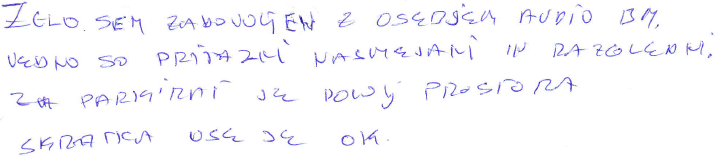 ZELO. SEM ZADOVOLJEN Z OSEBJEM AUDIO BM,
VEDNO SO PRIJAZNI NASMEJANI IN RAZGLEDNI,
ZA PARKIRAT JE DOVOLJ PROSTORA
SKRATKA VSE JE OK.